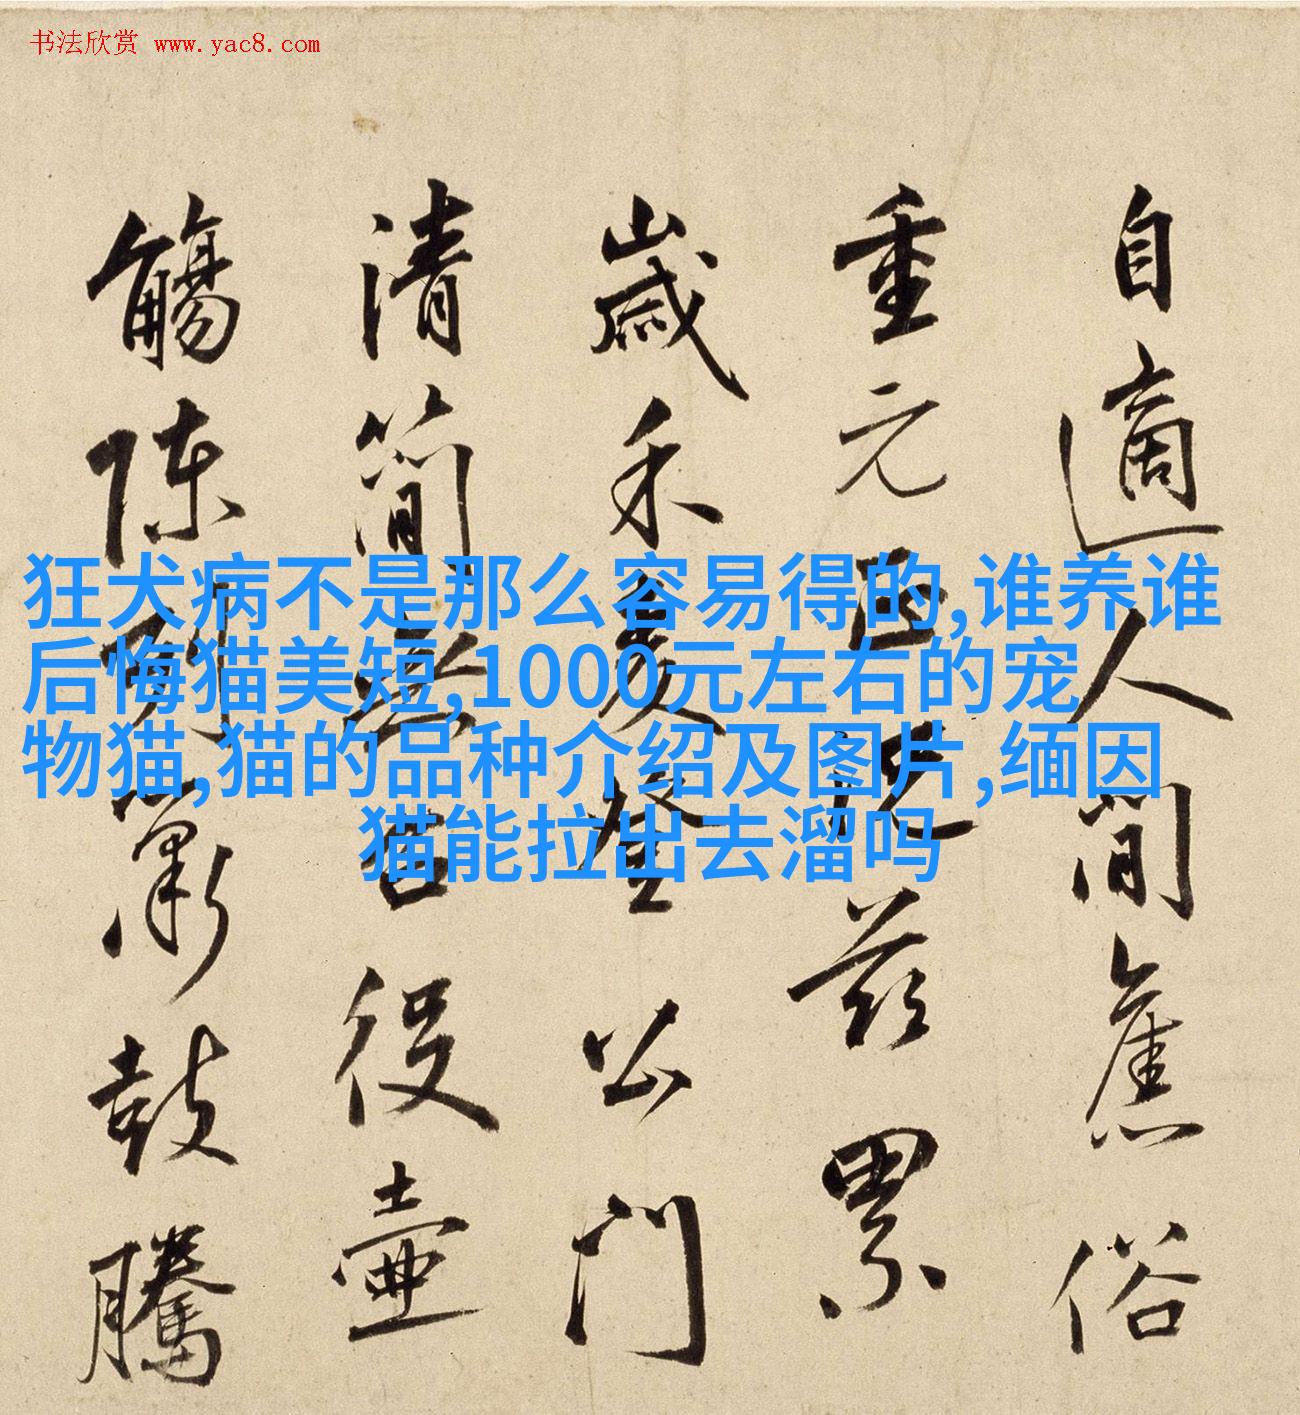 书法欣赏 www.yac8.com
狂犬病不是那么容易得的,谁养谁
后悔猫美短,1000元左右的宠
物猫,猫的品种介绍及图片,缅因
猫能拉出去溜吗
自適人間舊俗
重元西兹累
歲禾更登公門
清簡無苦役壺
觴陳列簫鼓騰